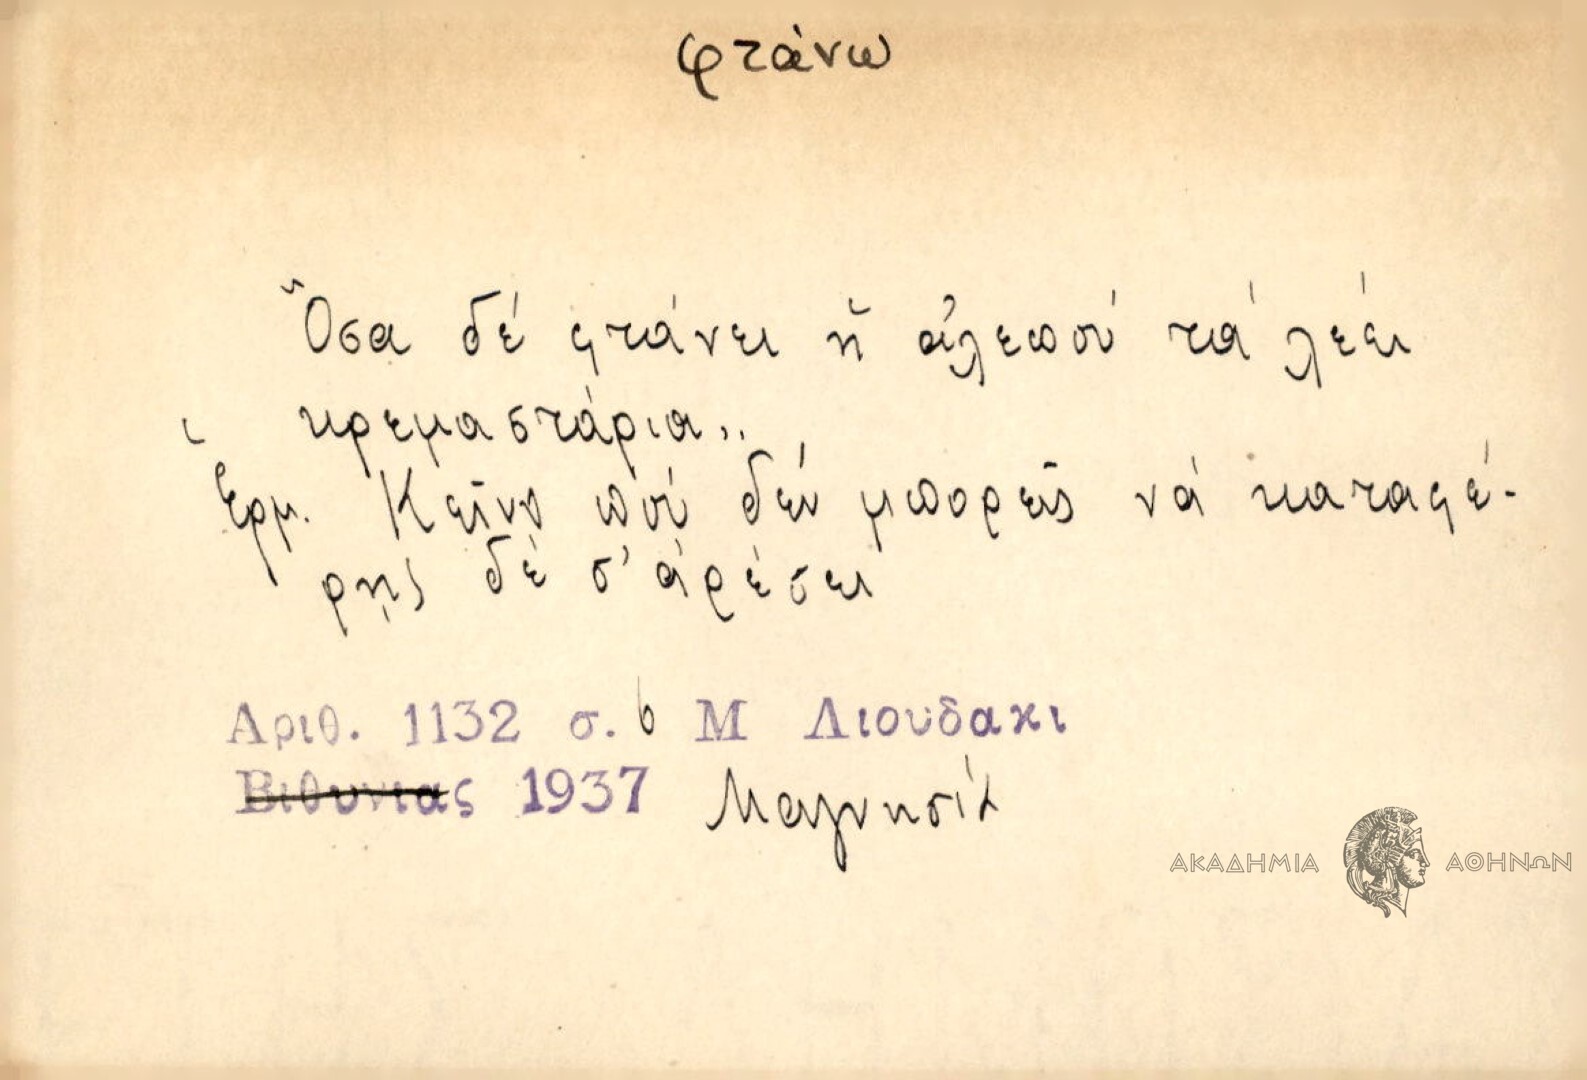 φτάνω
Ὅσα δέ φτάνει ἡ ἀλεπού τά λέει
κρεμαστάρια..
Ἑρμ. Κεῖνο πού δέν μπορεῖς νά καταφέ-
ρῃς δέ σ' ἀρέσει
Αριθ. 1132 σ. 6 Μ Λιουδακι
Βιθυνιας 1937 Μαγνησία
ΑΚΑΔΗΜΙΑ ΑΘΗΝΩΝ